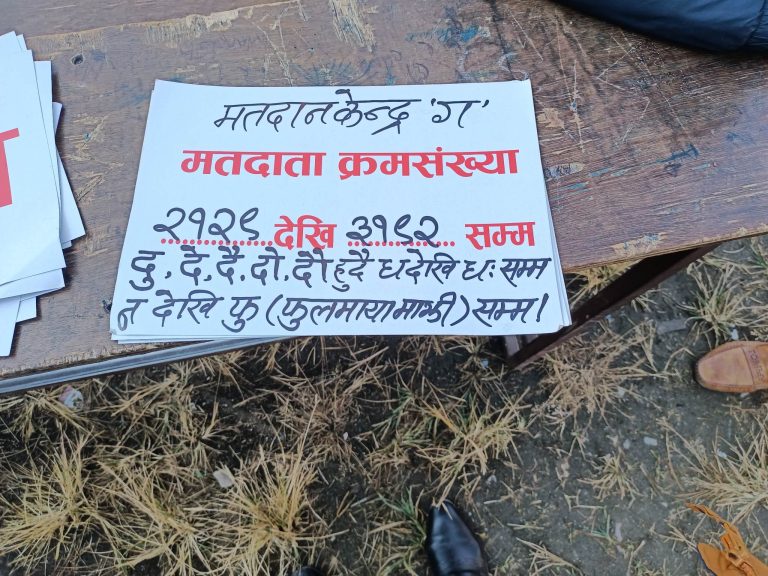 मतदान केन्द्र 'ग'
मतदाता क्रमसंख्या
२१२९ देखि ३१९२ सम्म
दु. दे. दै. दो. दौ हुदै ध देखि धः सम्म
न देखि फु (फुलमाया माझी) सम्म।